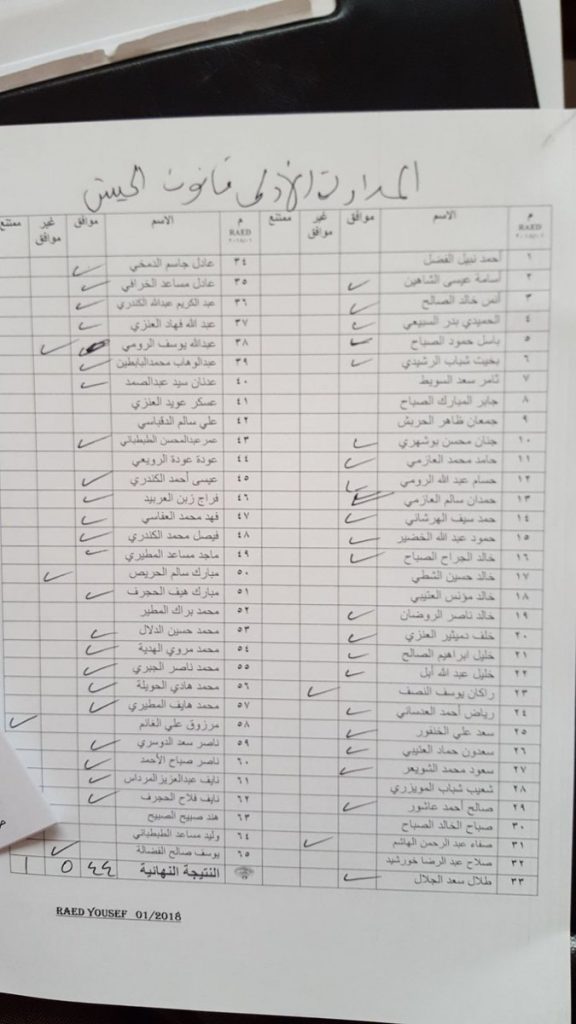 المداولة الأولى قانون الجيش
م RAED ٢٠١٨/٠١ الاسم موافق غير موافق ممتنع
١ أحمد نبيل الفضل
٢ أسامة عيسى الشاهين ✓
٣ أنس خالد الصالح ✓
٤ الحميدي بدر السبيعي ✓
٥ باسل حمود الصباح ✓
٦ بخيت شباب الرشيدي ✓
٧ ثامر سعد السويط
٨ جابر المبارك الصباح
٩ جمعان ظاهر الحربش
١٠ جنان محسن بوشهري ✓
١١ حامد محمد العازمي ✓
١٢ حسام عبد الله الرومي ✓
١٣ حمدان سالم العازمي ✓
١٤ حمد سيف الهرشاني ✓
١٥ حمود عبد الله الخضير ✓
١٦ خالد الجراح الصباح ✓
١٧ خالد حسين الشطي
١٨ خالد مؤنس العتيبي
١٩ خالد ناصر الروضان ✓
٢٠ خلف دميثير العنزي ✓
٢١ خليل ابراهيم الصالح ✓
٢٢ خليل عبد الله أبل ✓
٢٣ راكان يوسف النصف ✓
٢٤ رياض أحمد العدساني ✓
٢٥ سعد علي الخنفور ✓
٢٦ سعدون حماد العتيبي ✓
٢٧ سعود محمد الشويعر ✓
٢٨ شعيب شباب المويزري
٢٩ صالح أحمد عاشور ✓
٣٠ صباح الخالد الصباح
٣١ صفاء عبد الرحمن الهاشم ✓
٣٢ صلاح عبد الرضا خورشيد
٣٣ طلال سعد الجلال ✓
م RAED ٢٠١٨/٠١ الاسم موافق غير موافق ممتنع
٣٤ عادل جاسم الدمخي ✓
٣٥ عادل مساعد الخرافي ✓
٣٦ عبد الكريم عبدالله الكندري ✓
٣٧ عبد الله فهاد العنزي ✓
٣٨ عبدالله يوسف الرومي ✓
٣٩ عبدالوهاب محمد البابطين ✓
٤٠ عدنان سيد عبدالصمد ✓
٤١ عسكر عويد العنزي
٤٢ علي سالم الدقباسي
٤٣ عمر عبدالمحسن الطبطبائي ✓
٤٤ عودة عودة الرويعي
٤٥ عيسى أحمد الكندري ✓
٤٦ فراج زبن العربيد ✓
٤٧ فهد محمد العفاسي ✓
٤٨ فيصل محمد الكندري ✓
٤٩ ماجد مساعد المطيري ✓
٥٠ مبارك سالم الحريص ✓
٥١ مبارك هيف الحجرف ✓
٥٢ محمد براك المطير
٥٣ محمد حسين الدلال ✓
٥٤ محمد مروي الهدية ✓
٥٥ محمد ناصر الجبري ✓
٥٦ محمد هادي الحويلة ✓
٥٧ محمد هايف المطيري ✓
٥٨ مرزوق علي الغانم ✓
٥٩ ناصر سعد الدوسري ✓
٦٠ ناصر صباح الأحمد ✓
٦١ نايف عبدالعزيز المرداس ✓
٦٢ نايف فلاح الحجرف ✓
٦٣ هند صبيح الصبيح
٦٤ وليد مساعد الطبطبائي
٦٥ يوسف صالح الفضالة ✓
النتيجة النهائية ٤٤ ٥ ١
RAED YOUSEF 01/2018